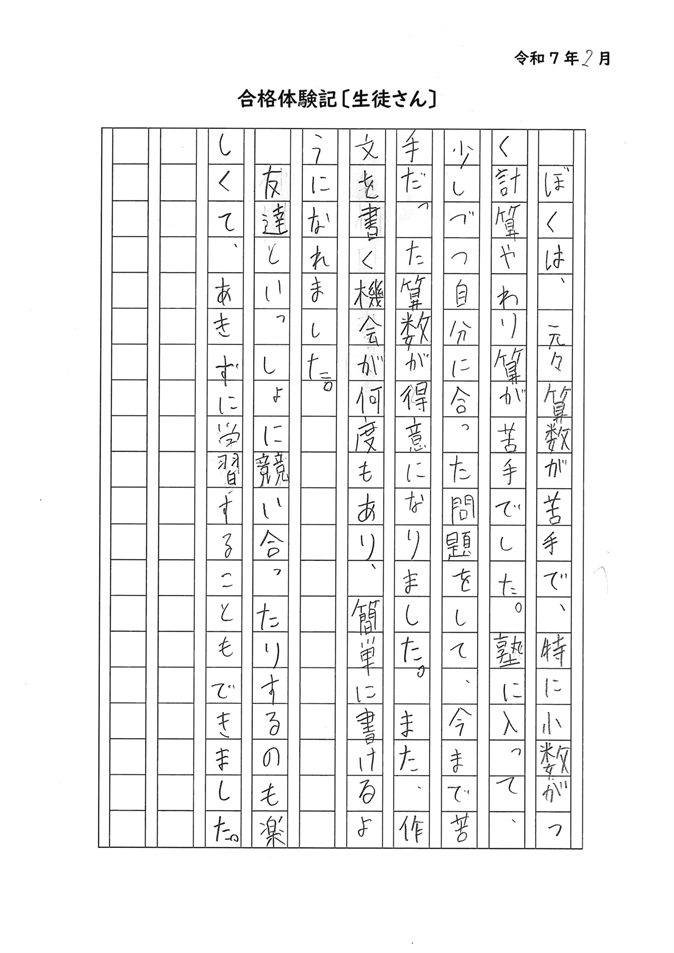 令和7年2月
合格体験記〔生徒さん〕
ぼくは、元々算数が苦手で、特に小数がつ
く計算やわり算が苦手でした。塾に入って、
少しづつ自分に合った問題をして、今まで苦
手だった算数が得意になりました。また、作
文を書く機会が何度もあり、簡単に書けるよ
うになれました。
友達といっしょに競い合ったりするのも楽
しくて、あきずに学習することもできました。